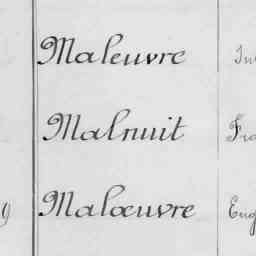 Maleuvre
Malnuit
9 Malœuvre Eng